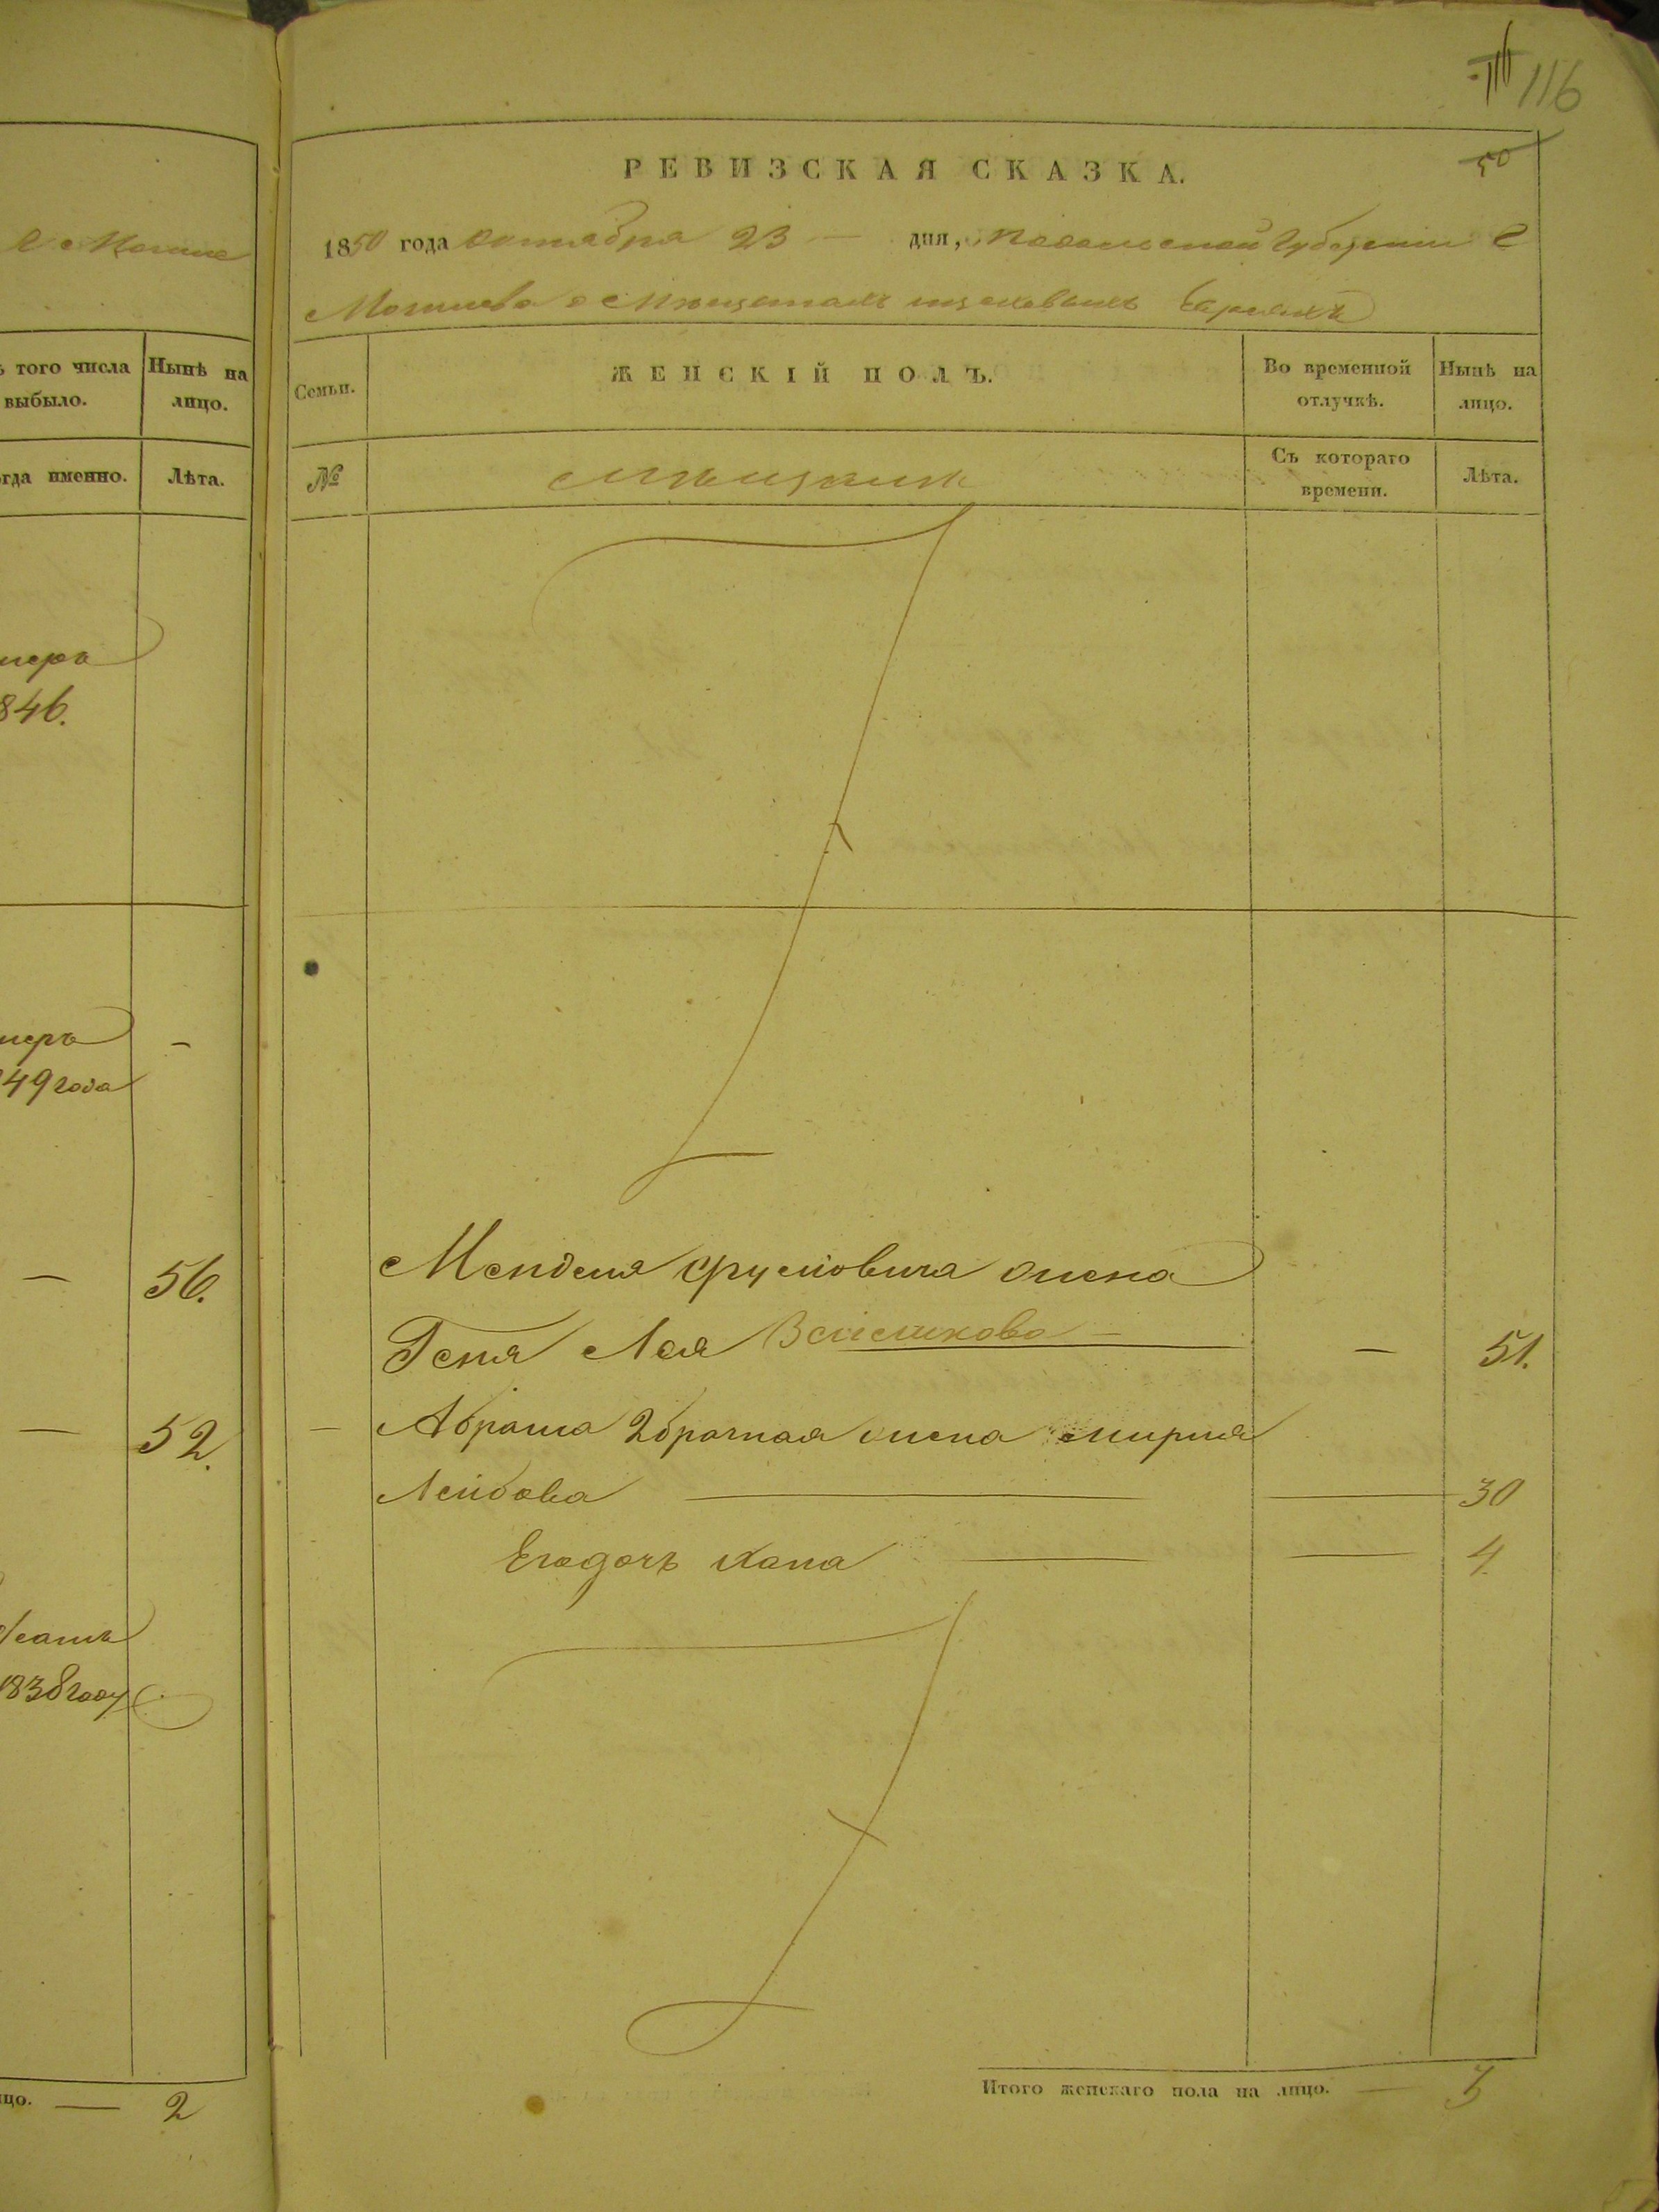 116
РЕВИЗСКАЯ СКАЗКА.
50
1850 года октября 23 — дня, Подольской Губернии
Могилева о мѣщанахъ евреяхъ
ъ того числа выбыло.
Нынѣ на лицо.
Семьи.
ЖЕНСКІЙ ПОЛЪ.
Во временной отлучкѣ.
Нынѣ на лицо.
огда именно.
Лѣта.
№
мѣщане
Съ котораго времени.
Лѣта.
меръ
846.
меръ —
49 года
— 56.
Менделя Срулiовича жена
Геня Лея — 51.
— 52.
— Абрама 2 брачная жена Мирля
Лейбова — 30
Его дочь Хана — 4.
1838 году
цо. — 2
Итого женскаго пола на лицо. — 3